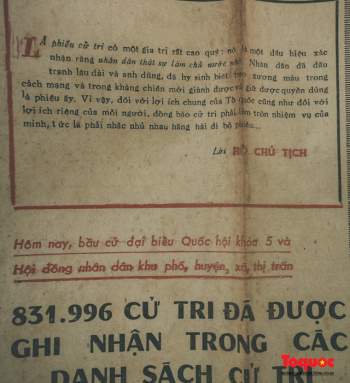 LÁ phiếu cử tri có một giá trị rất cao quý: nó là một dấu hiệu xác
nhận rằng nhân dân thật sự làm chủ nước nhà. Nhân dân đã đấu
tranh lâu dài và anh dũng, đã hy sinh biết bao xương máu trong
cách mạng và trong kháng chiến mới giành được và giữ được quyền dùng
lá phiếu ấy. Vì vậy, đối với lợi ích chung của Tổ quốc cũng như đối với
lợi ích riêng của mỗi người, đồng bào cử tri phải làm tròn nhiệm vụ của
mình, tức là phải nhắc nhủ nhau hăng hái đi bỏ phiếu...
Lời HỒ CHỦ TỊCH
Hôm nay, bầu cử đại biểu Quốc hội khóa 5 và
Hội đồng nhân dân khu phố, huyện, xã, thị trấn
831.996 CỬ TRI ĐÃ ĐƯỢC
GHI NHẬN TRONG CÁC
DANH SÁCH CỬ TRI
Toquoc